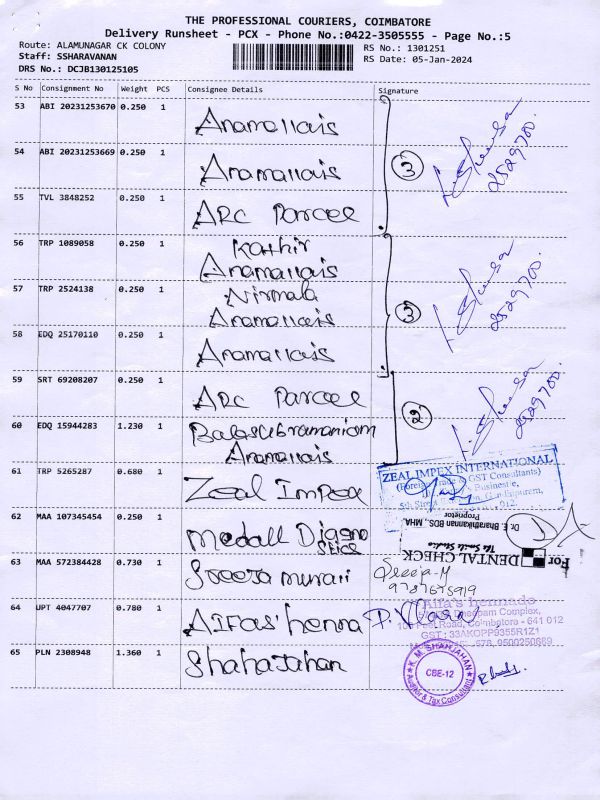 THE PROFESSIONAL COURIERS, COIMBATORE
Delivery Runsheet - PCX - Phone No.:0422-3505555 - Page No.:5
Route: ALAMUNAGAR CK COLONY
RS No.: 1301251
Staff: SSHARAVANAN
RS Date: 05-Jan-2024
DRS No.: DCJB130125105
S No Consignment No Weight PCS Consignee Details Signature
53 ABI 20231253670 0.250 1 Anamallais
54 ABI 20231253669 0.250 1 Anamallais
3
2529700.
55 TVL 3848252 0.250 1 ARC Parcel
56 TRP 1089058 0.250 1 Kathir
Anamallais
57 TRP 2524138 0.250 1 Nirmala
Anamallais
3
2529700.
58 EDQ 25170110 0.250 1 Anamallais
59 SRT 69208207 0.250 1 ARC Parcel
2
2529700.
60 EDQ 15944283 1.230 1 Balasubramaniam
Anamallais
61 TRP 5265287 0.680 1 Zeal Impex
ZEAL IMPEX INTERNATIONAL
(Foreign Trade & GST Consultants)
62 MAA 107345454 0.250 1 Medall Diagno
stics
Dr. E. Bharathikannan BDS., MHA.
Proprietor
The Smile Studio
For DENTAL CHECK
63 MAA 572384428 0.730 1 Sreeja murali
Sreeja.M
9787675919
64 UPT 4047707 0.780 1 Alfas' henna
Alfa's hennado
Complex,
Road, Coimbatore - 641 012
GST : 33AKOPP9355R1Z1
65 PLN 2308948 1.360 1 Shahajahan
K. M. SHAHJAHAN
CBE-12
Auditor & Tax Consultant